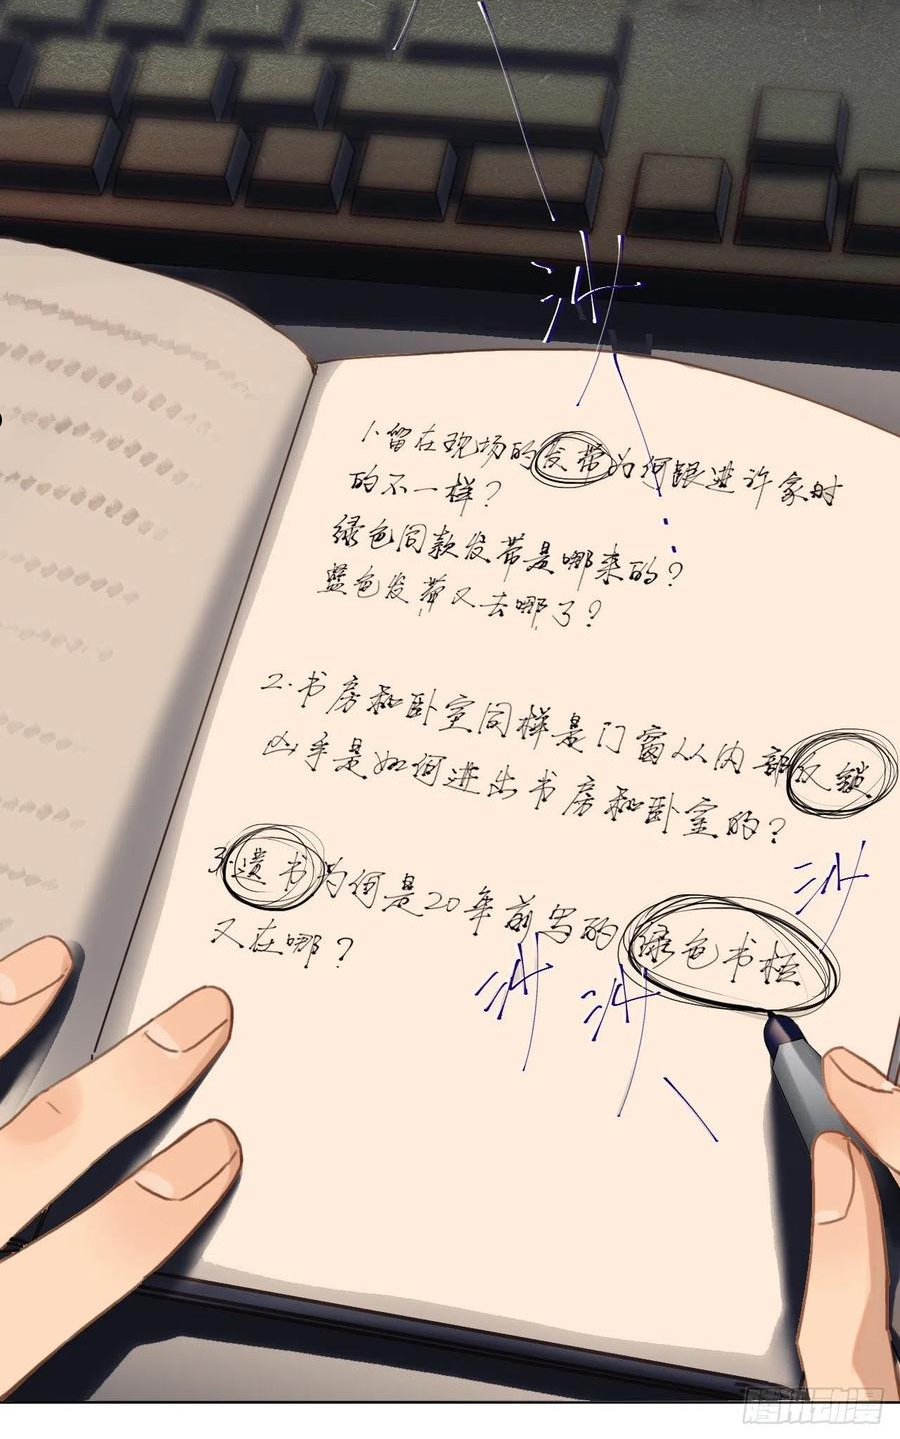 沙
1.留在现场的发带为何跟进许家时
的不一样？
绿色同款发带是哪来的？
蓝色发带又去哪了？
2.书房和卧室同样是门窗从内部反锁
凶手是如何进出书房和卧室的？
3.遗书为何是20年前写的绿色书桓
又在哪？
沙
沙
沙
腾讯动漫